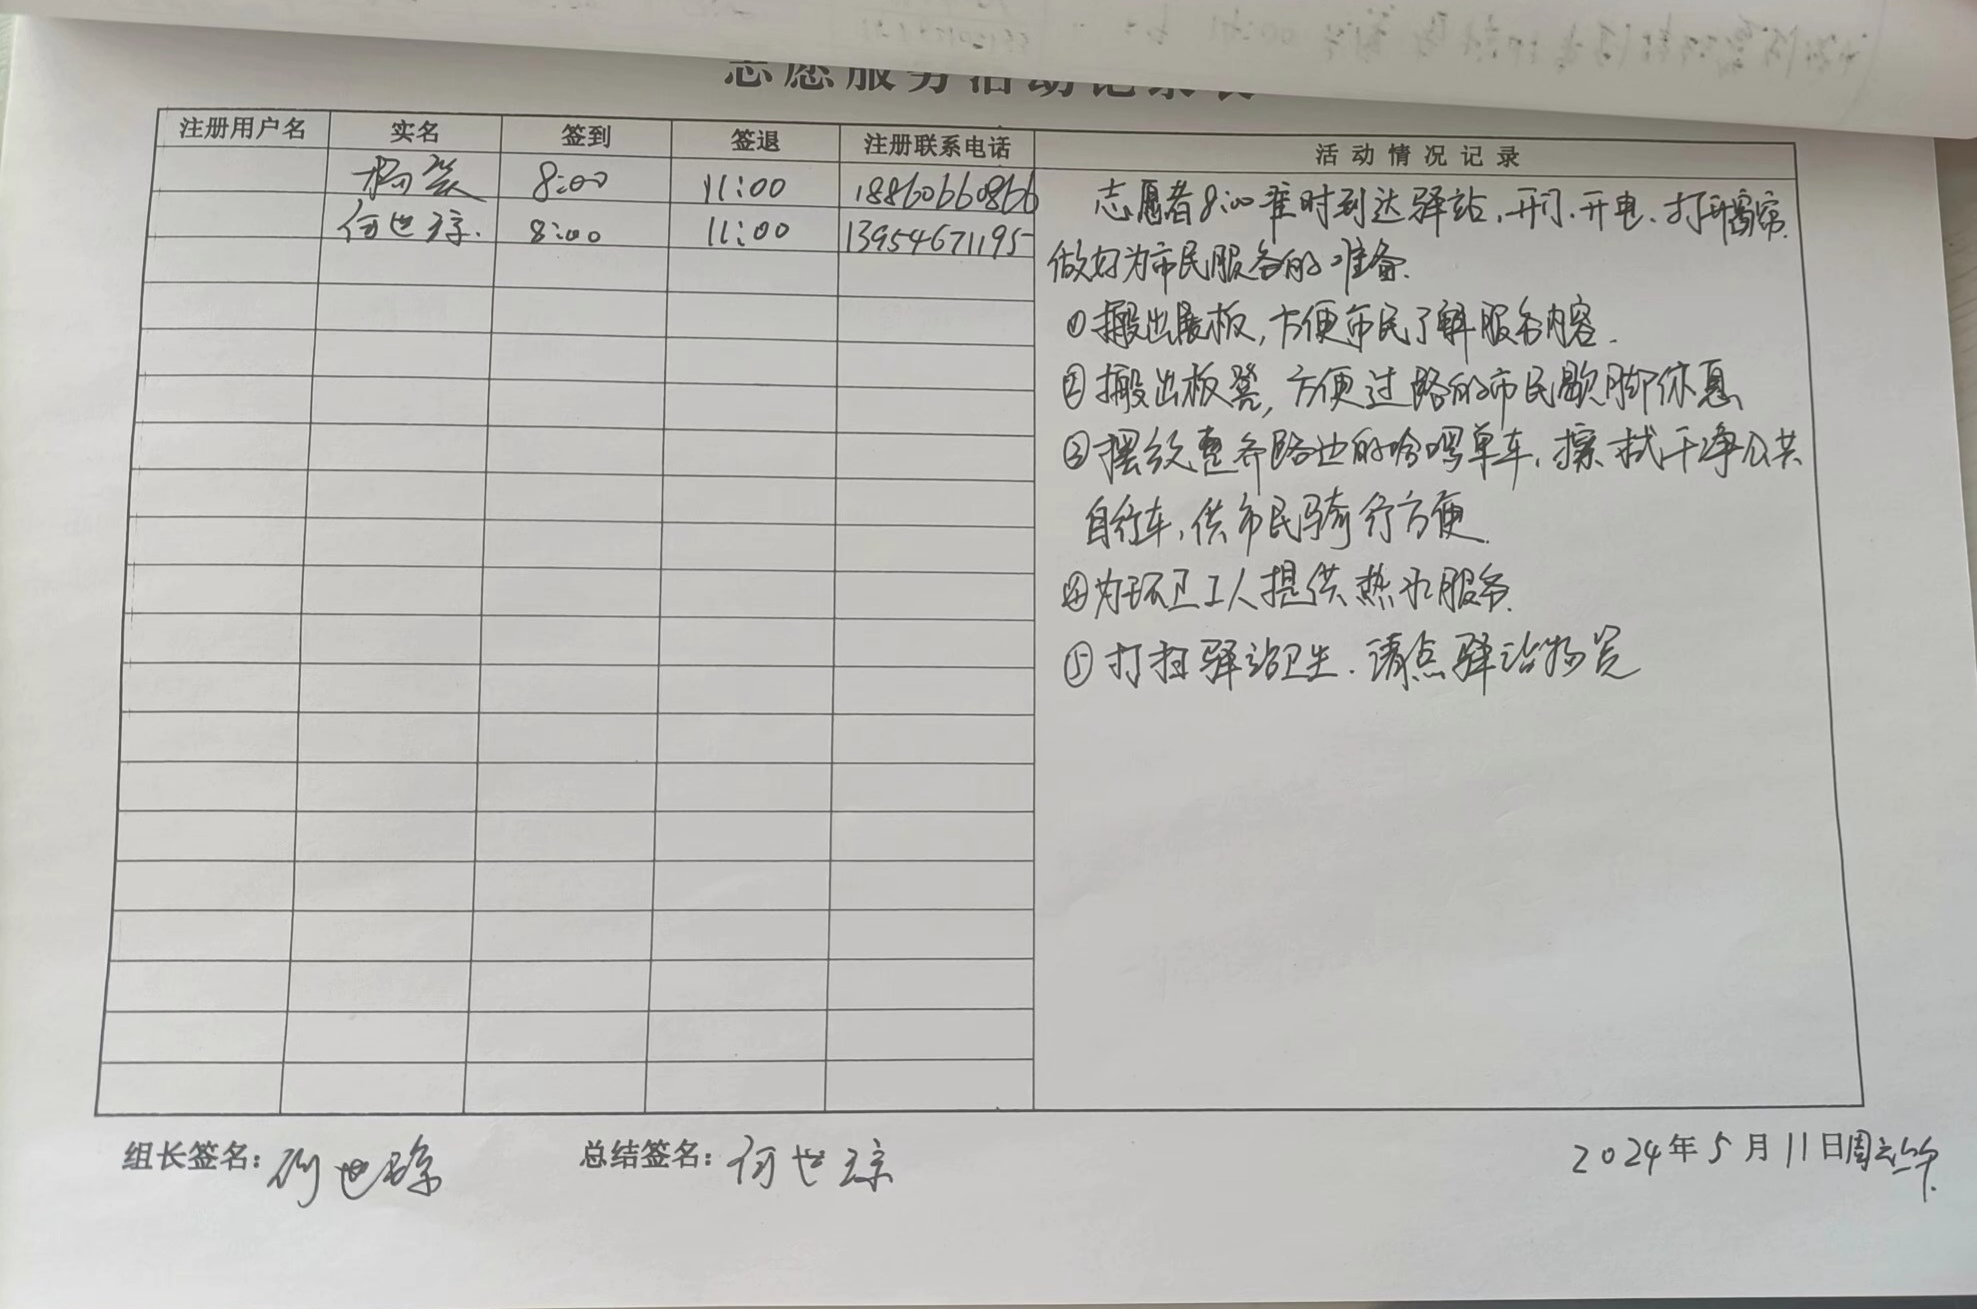 志愿服务活动记录表
注册用户名 实名 签到 签退 注册联系电话 活动情况记录
杨 8:00 11:00 18860660866
何世琼. 8:00 11:00 13954671195
志愿者8:00准时到达驿站、开门、开电、打开窗帘.
做好为市民服务的准备.
①搬出展板,方便市民了解服务内容.
②搬出板凳,方便过路的市民歇脚休息
③摆放整齐路边的哈啰单车,擦拭干净公共
自行车,供市民骑行方便.
④为环卫工人提供热水服务.
⑤打扫驿站卫生.清点驿站物资
组长签名: 何世琼 总结签名: 何世琼 2024年5月11日周六上午.